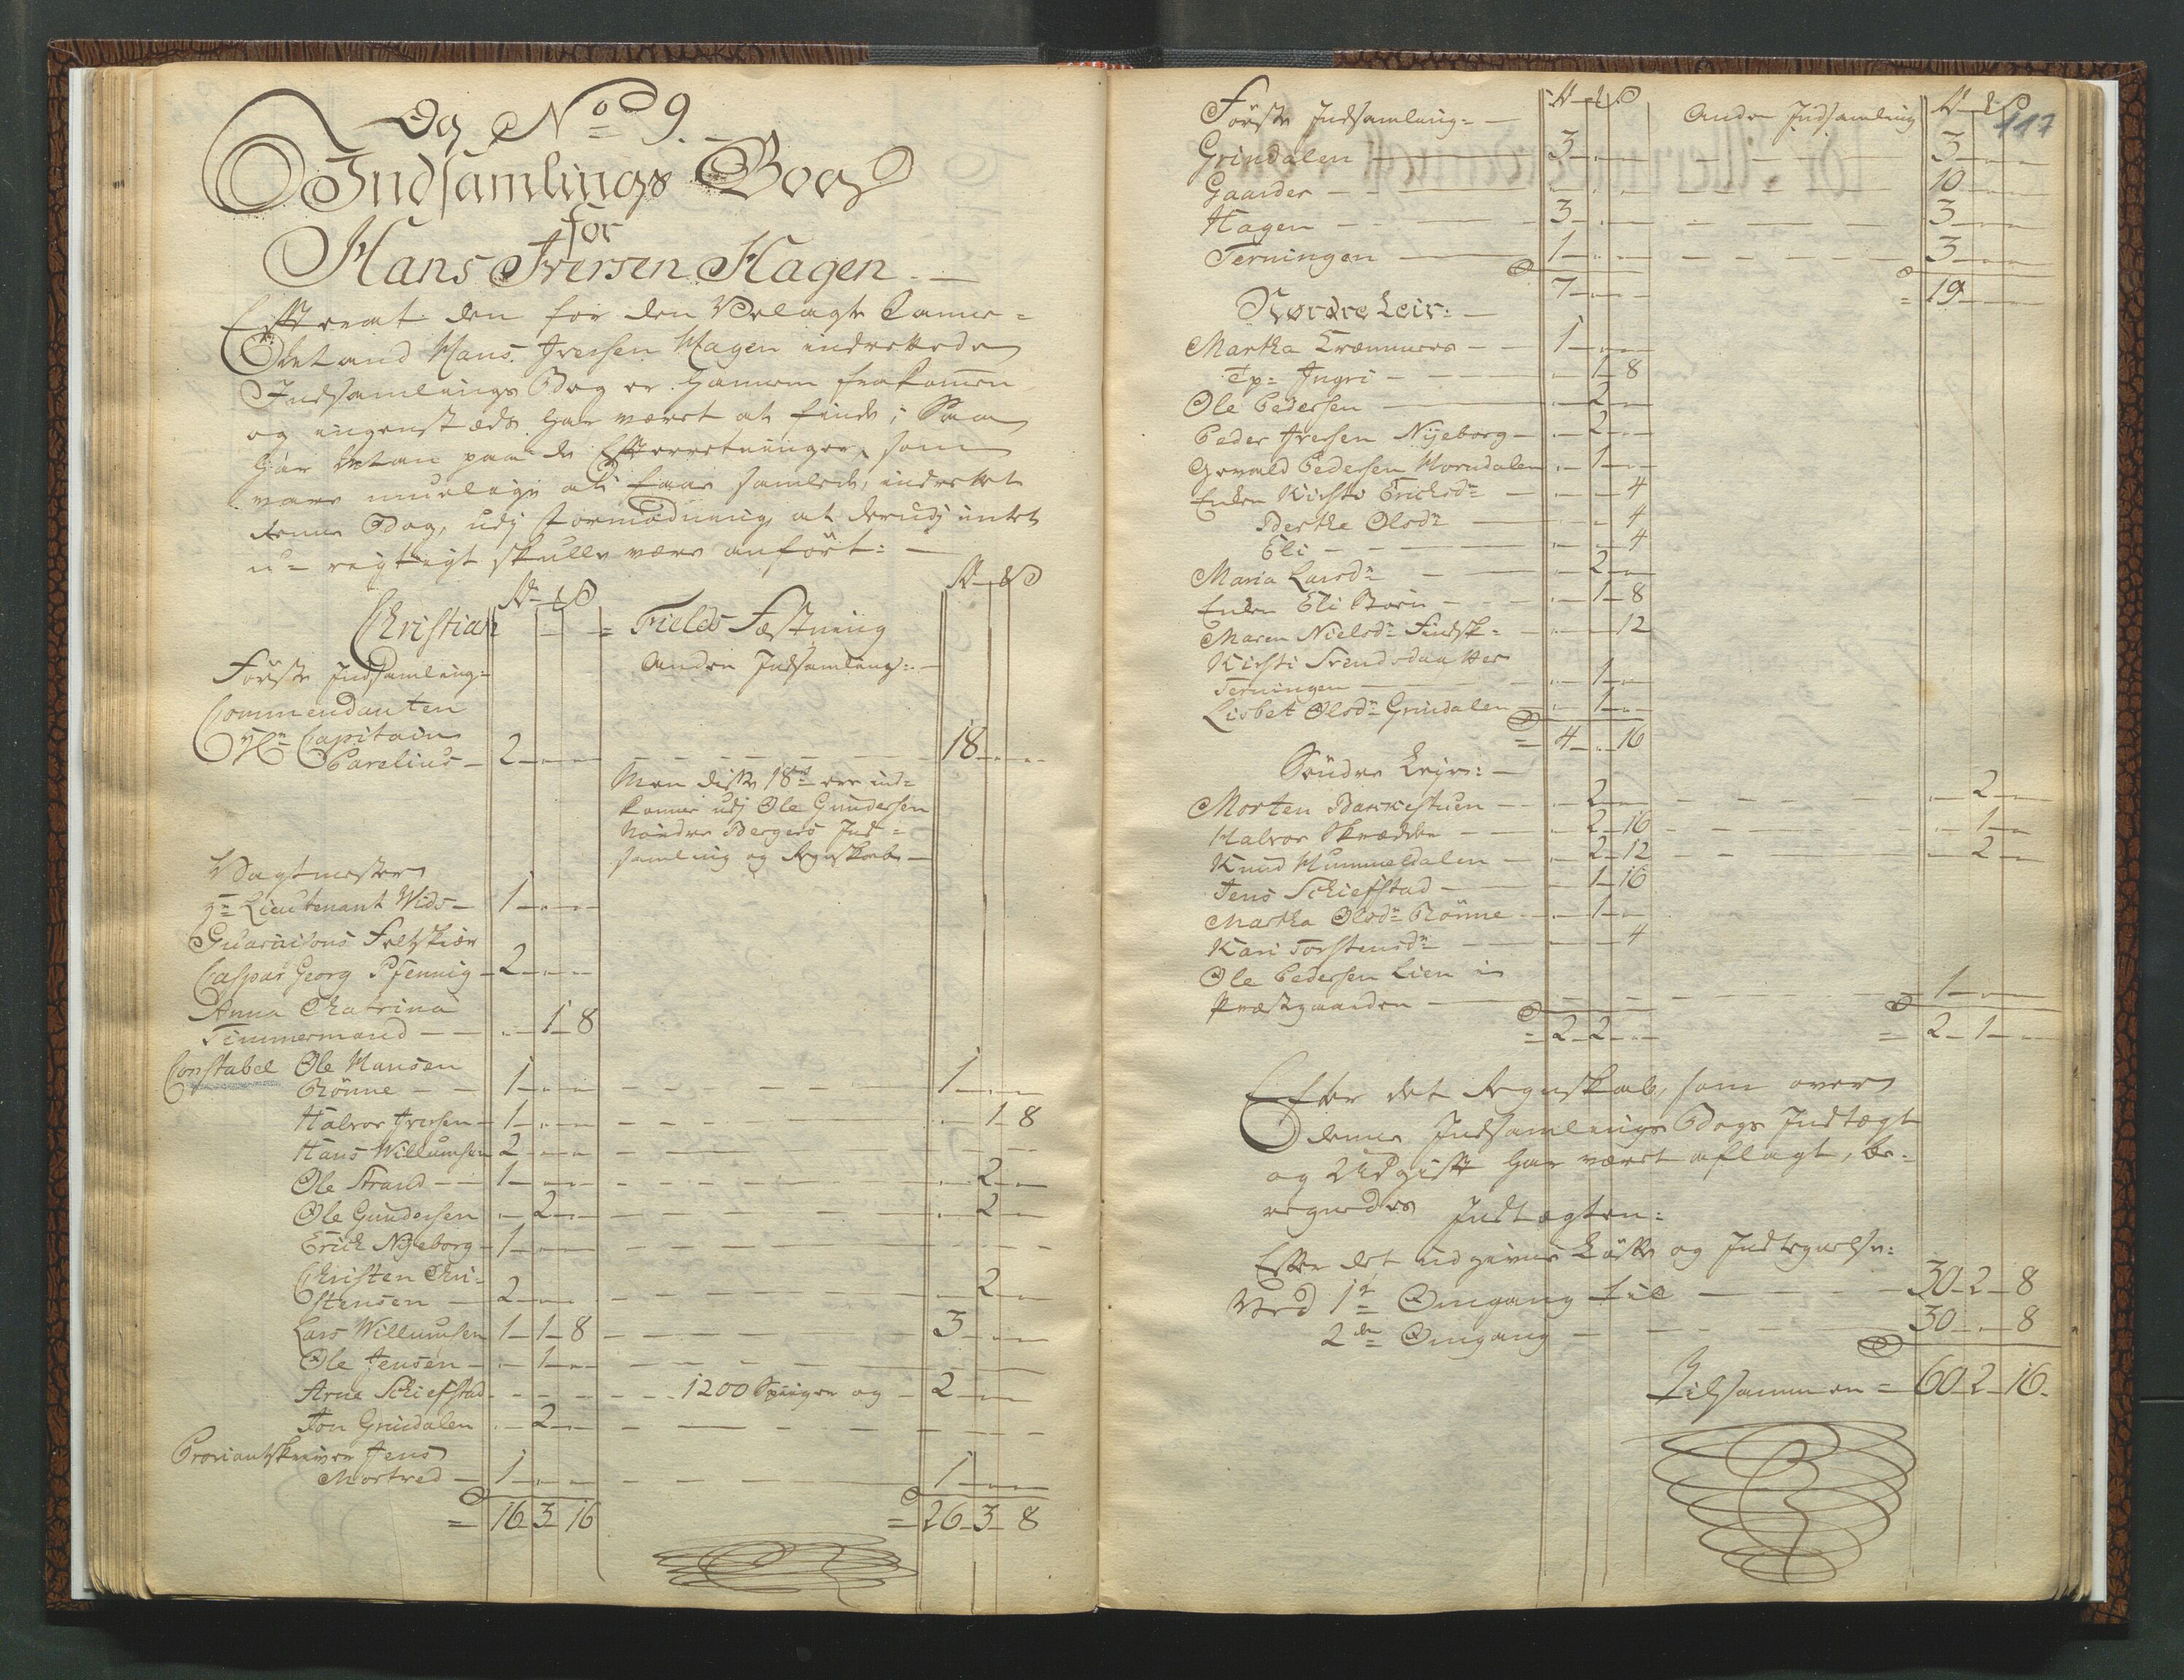 Og No 9.
Indsamlings Bog
for
Hans Iversen Hagen. —
Efterat den for den Velagte Camme-
Hans Iversen Hagen indrettede
Indsamlings Bog er hannem frakommen
og ingenstæds har været at finde; Saa
har man paa de Efterretninger, som
vare muelige at faae samlede, indrettet
denne Bog, udj formodning at derudj intet
u-rigtigt skulle være anført: —
Christians = Fields Fæstning
Første Indsamling: Anden Indsamling: —
Commendanten
Hr Capitain
Parelius — 2 — — 18 — —
Men disse 18 rd ere ind-
komne udj Ole Gundersen
Nordre Bergers Ind-
samling og Regnskab —
Vagtmester
hr Lieutenant Wids — 1 — —
Guarnisons Feltskiær
Caspar Georg Pfennig — 2 — —
Anna Chatrina
Timmermand — — 1 — 8
Constabel Ole Hansen
Rönne — — 1 — — 1 — —
Halvor Iversen — 1 — — 1 — 8
Hans Willumsen 2 — —
Ole Strand — — 1 — — 2 —
Ole Gundersen — 2 — — 2 —
Erich Nyeborg — 1 — —
Christen Chri-
stensen — 2 — — 2 —
Lars Willumsen 1 — 1 — 8 — 3 — —
Ole Jensen — 1 —
Arne Schiefstad — 1200 Spiiger og — 2 — —
Jon Grindalen — 2 —
Proviantskriver Jens
Mortved — 1 — — 1 — —
= 16 — 3 — 16 = 26 — 3 — 8
117
Første Indsamling: — Anden Indsamling
Grindalen — 3 — — 3 — —
Gaarder — — 10 — —
Hagen — 3 — — 3 — —
Terningen — 1 — — 3 — —
7 — — = 19 — —
Nordre Leir: —
Martha Cræmmers — 1 — —
Tp= Ingri — 1 — 8
Ole Pedersen — 2 —
Peder Iversen Nyeborg — 2 —
Pedersen Horndalen — 1 —
Enken Kirsti Ericksdr — 4
Berthe Olsdr — 4
Eli — 4
Maria Larsdr — 2 —
Enken Eli Børn — 1 — 8
Maren Nielsdr Findsk= — 12
Kirsti Svendsdaatter
Terningen — 1 —
Lisbet Olsdr Grindalen — 1 —
= 4 — 16
Søndre Leyr: —
Morten Bakkestuen — 2 — — 2 —
Halvor Skredder — 2 — 16 — 1 —
Knud Hummeldalen — 2 — 12 — 2 —
Jens Schiefstad — 1 — 16
Martha Olsdr Rönne — 1 —
Kari Torstensdr — 4
Ole Pedersen Lien i
Præstgaarden — 1 — —
= 2 — 2 — = 2 — 1 —
Efter det Regnskab, som over
denne Indsamlings Bogs Indtægt
og Udgift har været aflagt, be-
regnedes Indtægten:
Efter det udgivne Löfte og Indtegnelse:
Ved 1te Omgang til — 30 — 2 — 8
2den Omgang — 30 — — 8
Tilsammen = 60 — 2 — 16.